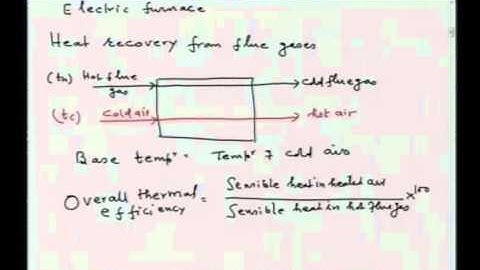 Electric furnace
Heat recovery from flue gases
(th) Hot flue gas → cold flue gas
(tc) Cold air → hot air
Base tempr = Tempr of cold air
Overall thermal efficiency = Sensible heat in heated air / Sensible heat in hot flue gas × 100